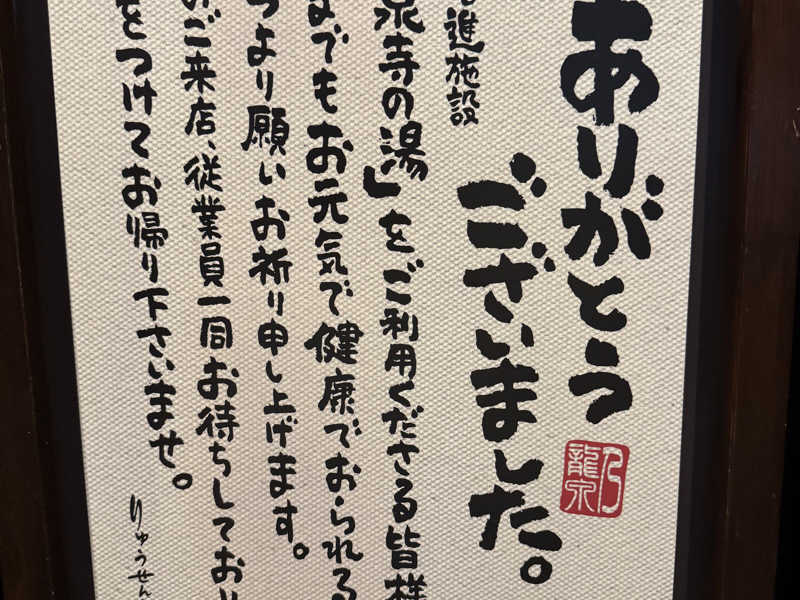 ありがとう
ございました。
進施設
泉寺の湯」をご利用くださる皆様
までもお元気で健康でおられる
より願いお祈り申し上げます。
ご来店、従業員一同お待ちしており
をつけてお帰り下さいませ。
りゅうせん
乃
龍泉